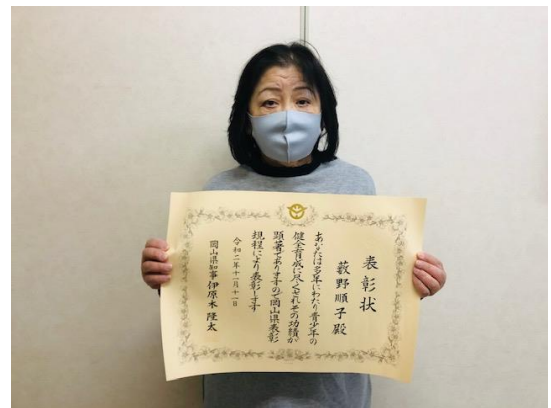 表彰状
藪野順子殿
あなたは多年にわたり青少年の
健全育成に尽くされその功績が
顕著でありますので岡山県表彰
規程により表彰します
令和二年十一月十一日
岡山県知事伊原木隆太